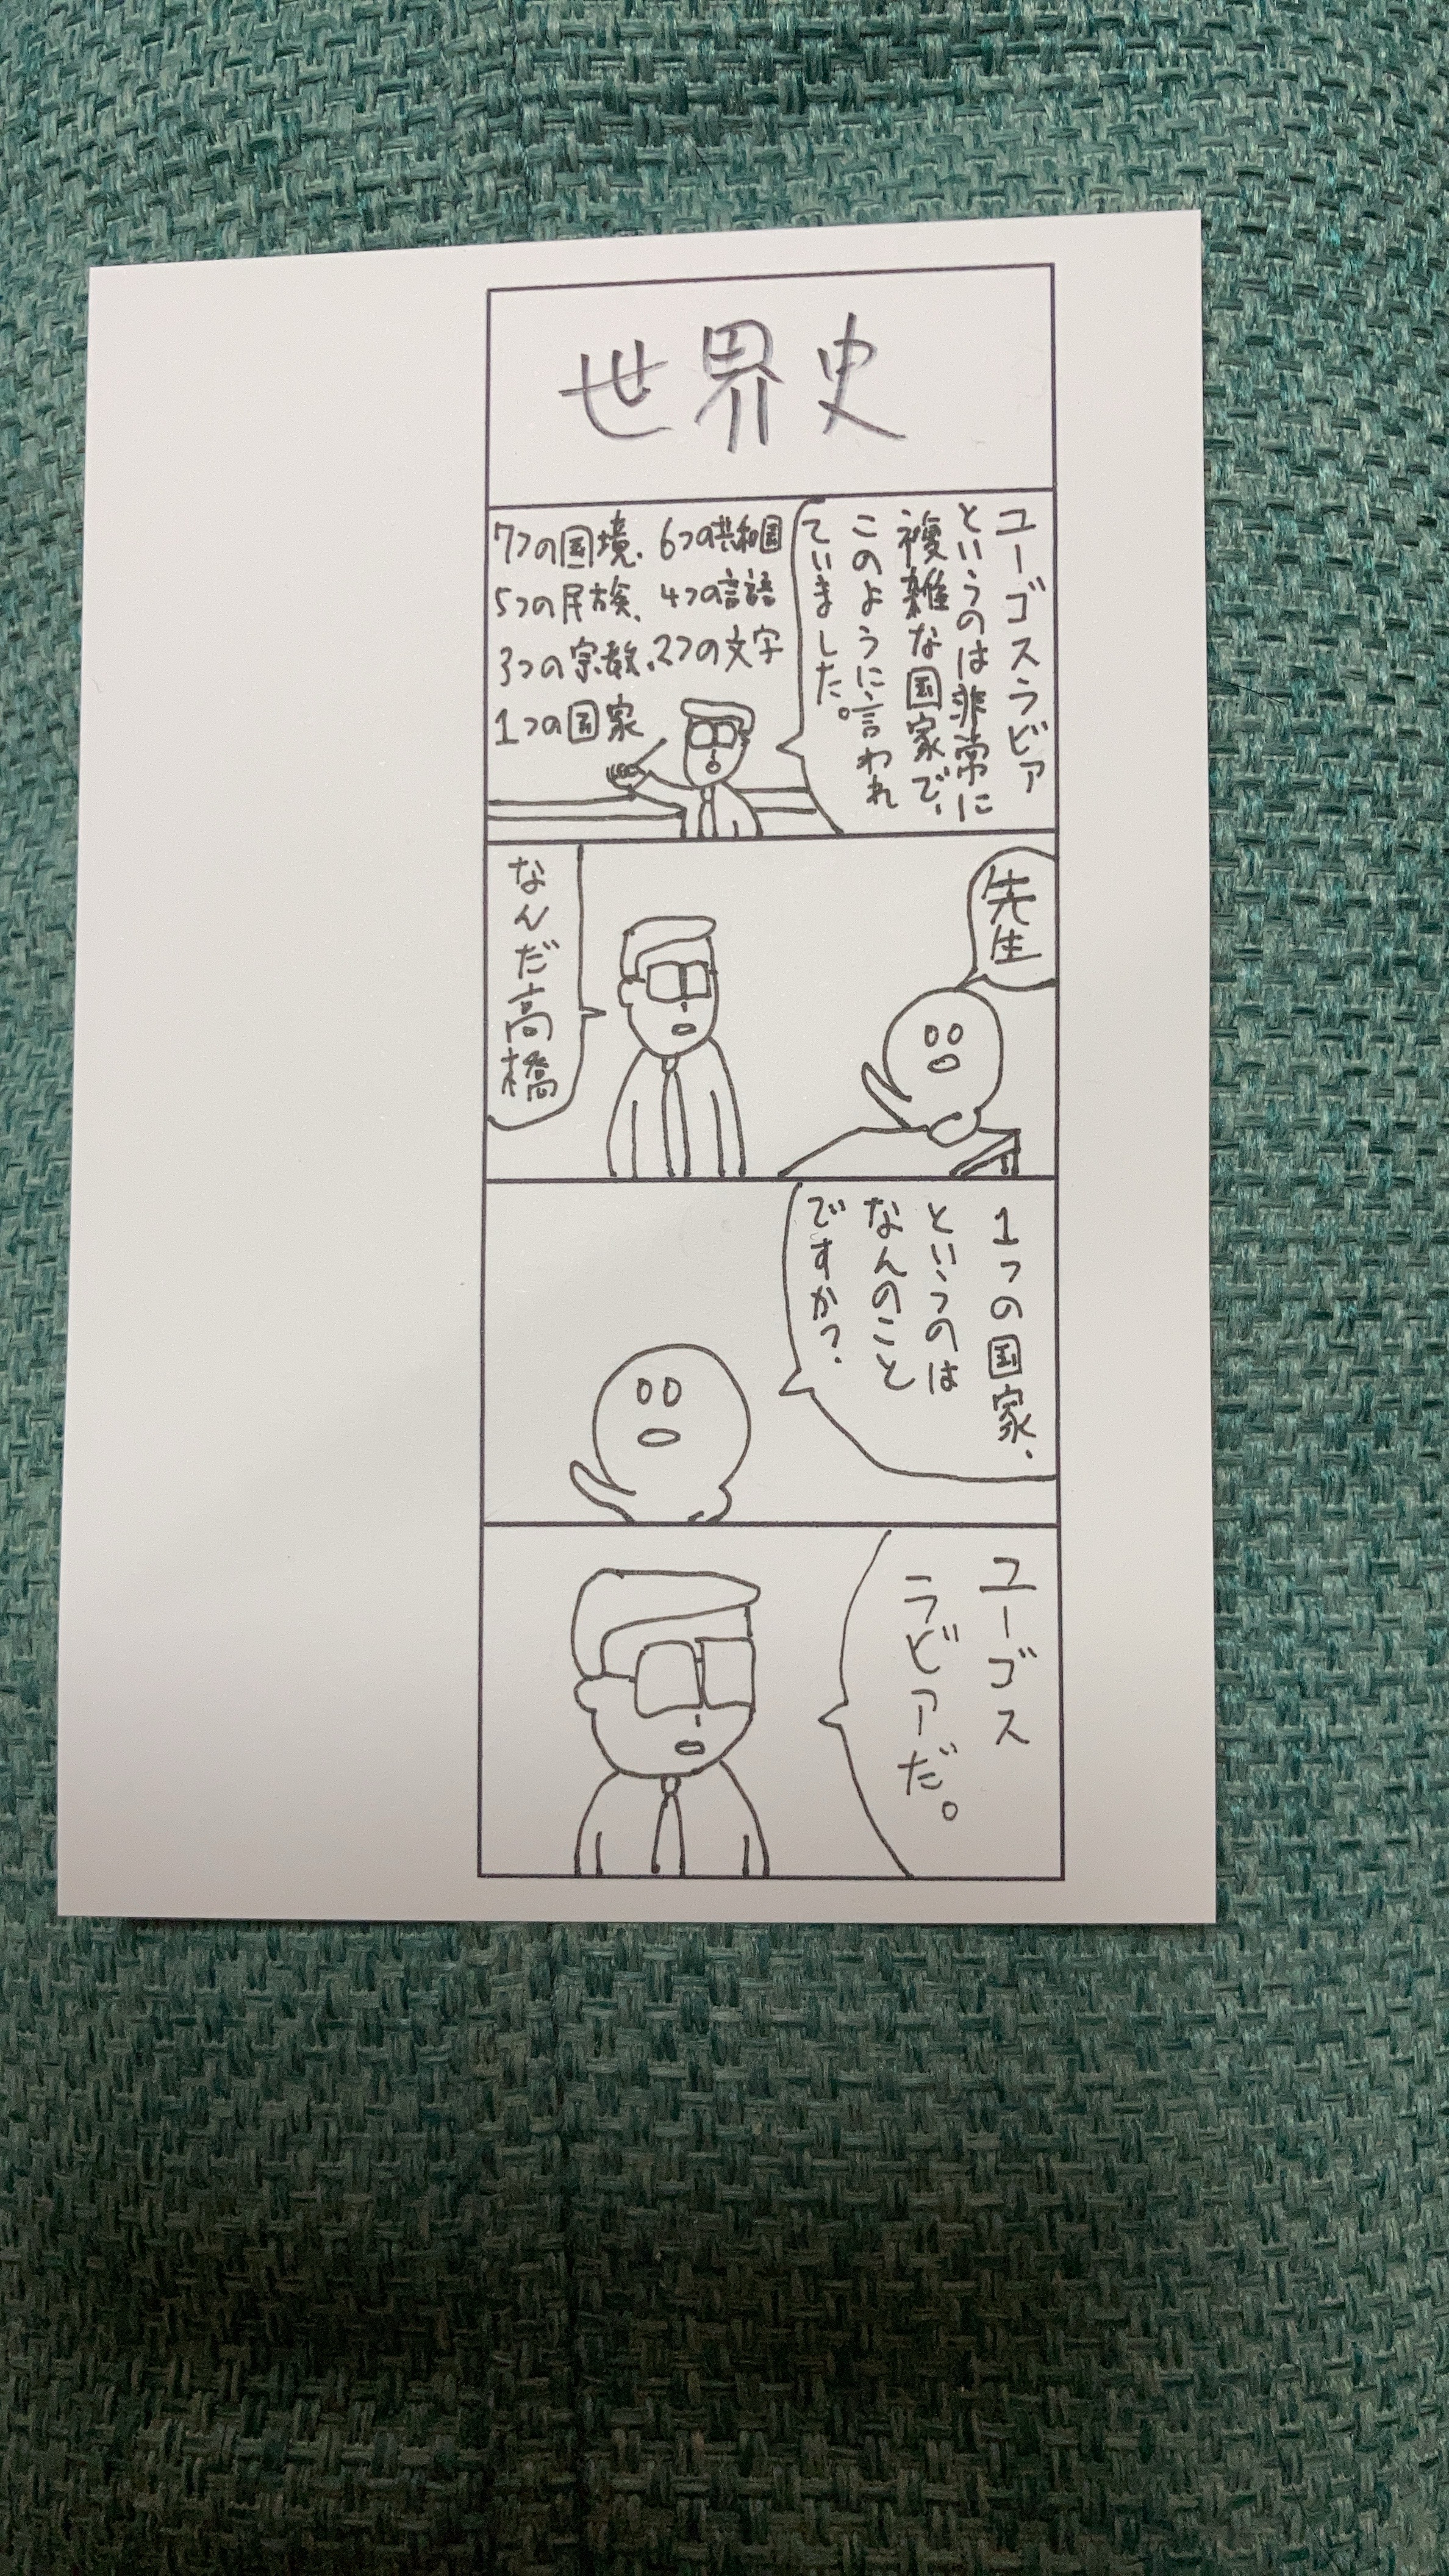 世界史
ユーゴスラビア
というのは非常に
複雑な国家で、
このように言われ
ていました。
7つの国境、6つの共和国
5つの民族、4つの言語
3つの宗教、2つの文字
1つの国家
先生
なんだ高橋
1つの国家、
というのは
なんのこと
ですか?
ユーゴス
ラビアだ。